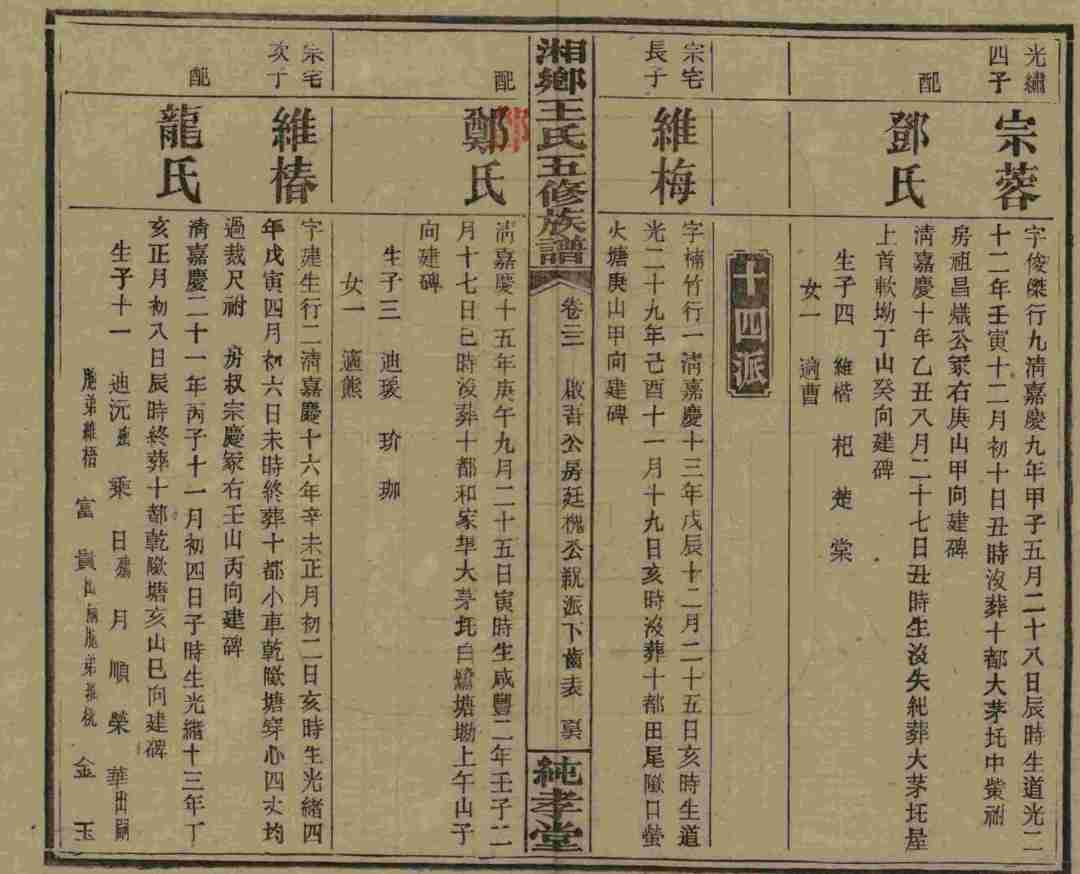 光繡
四子
宗蓉
字俊傑行九清嘉慶九年甲子五月二十八日辰時生道光二
十二年壬寅十二月初十日丑時沒葬十都大茅坵中螢祔
房祖昌熾公冢右庚山甲向建碑
配
鄧氏
清嘉慶十年乙丑八月二十七日丑時生沒失紀葬大茅坵屋
上首軟坳丁山癸向建碑
生子四 維楷 杷 楚 棠
女一 適曹
十四派
宗宅
長子
維梅
字楠竹行一清嘉慶十三年戊辰十二月二十五日亥時生道
光二十九年己酉十一月十九日亥時沒葬十都田尾陂口螢
火塘庚山甲向建碑
湘鄉王氏五修族譜
卷三三 啟吾公房廷槐公親派下齒表
純孝堂
配
鄭氏
清嘉慶十五年庚午九月二十五日寅時生咸豐二年壬子二
月十七日巳時沒葬十都和家大茅坵白鷺塘坳上午山子
向建碑
生子三 迪瑗 玠 珈
女一 適熊
宗宅
次子
維椿
字建生行二清嘉慶十六年辛未正月初二日亥時生光緒四
年戊寅四月初六日未時終葬十都小車乾塘穿心四丈均
過裁尺祔 房叔宗慶冢右壬山丙向建碑
配
龍氏
清嘉慶二十一年丙子十一月初四日子時生光緒十三年丁
亥正月初八日辰時終葬十都乾塘亥山巳向建碑
生子十一 迪沅 乘 日 月 順 榮 華出嗣
胞弟維梧 富 貴出嗣胞弟維杭 金 玉